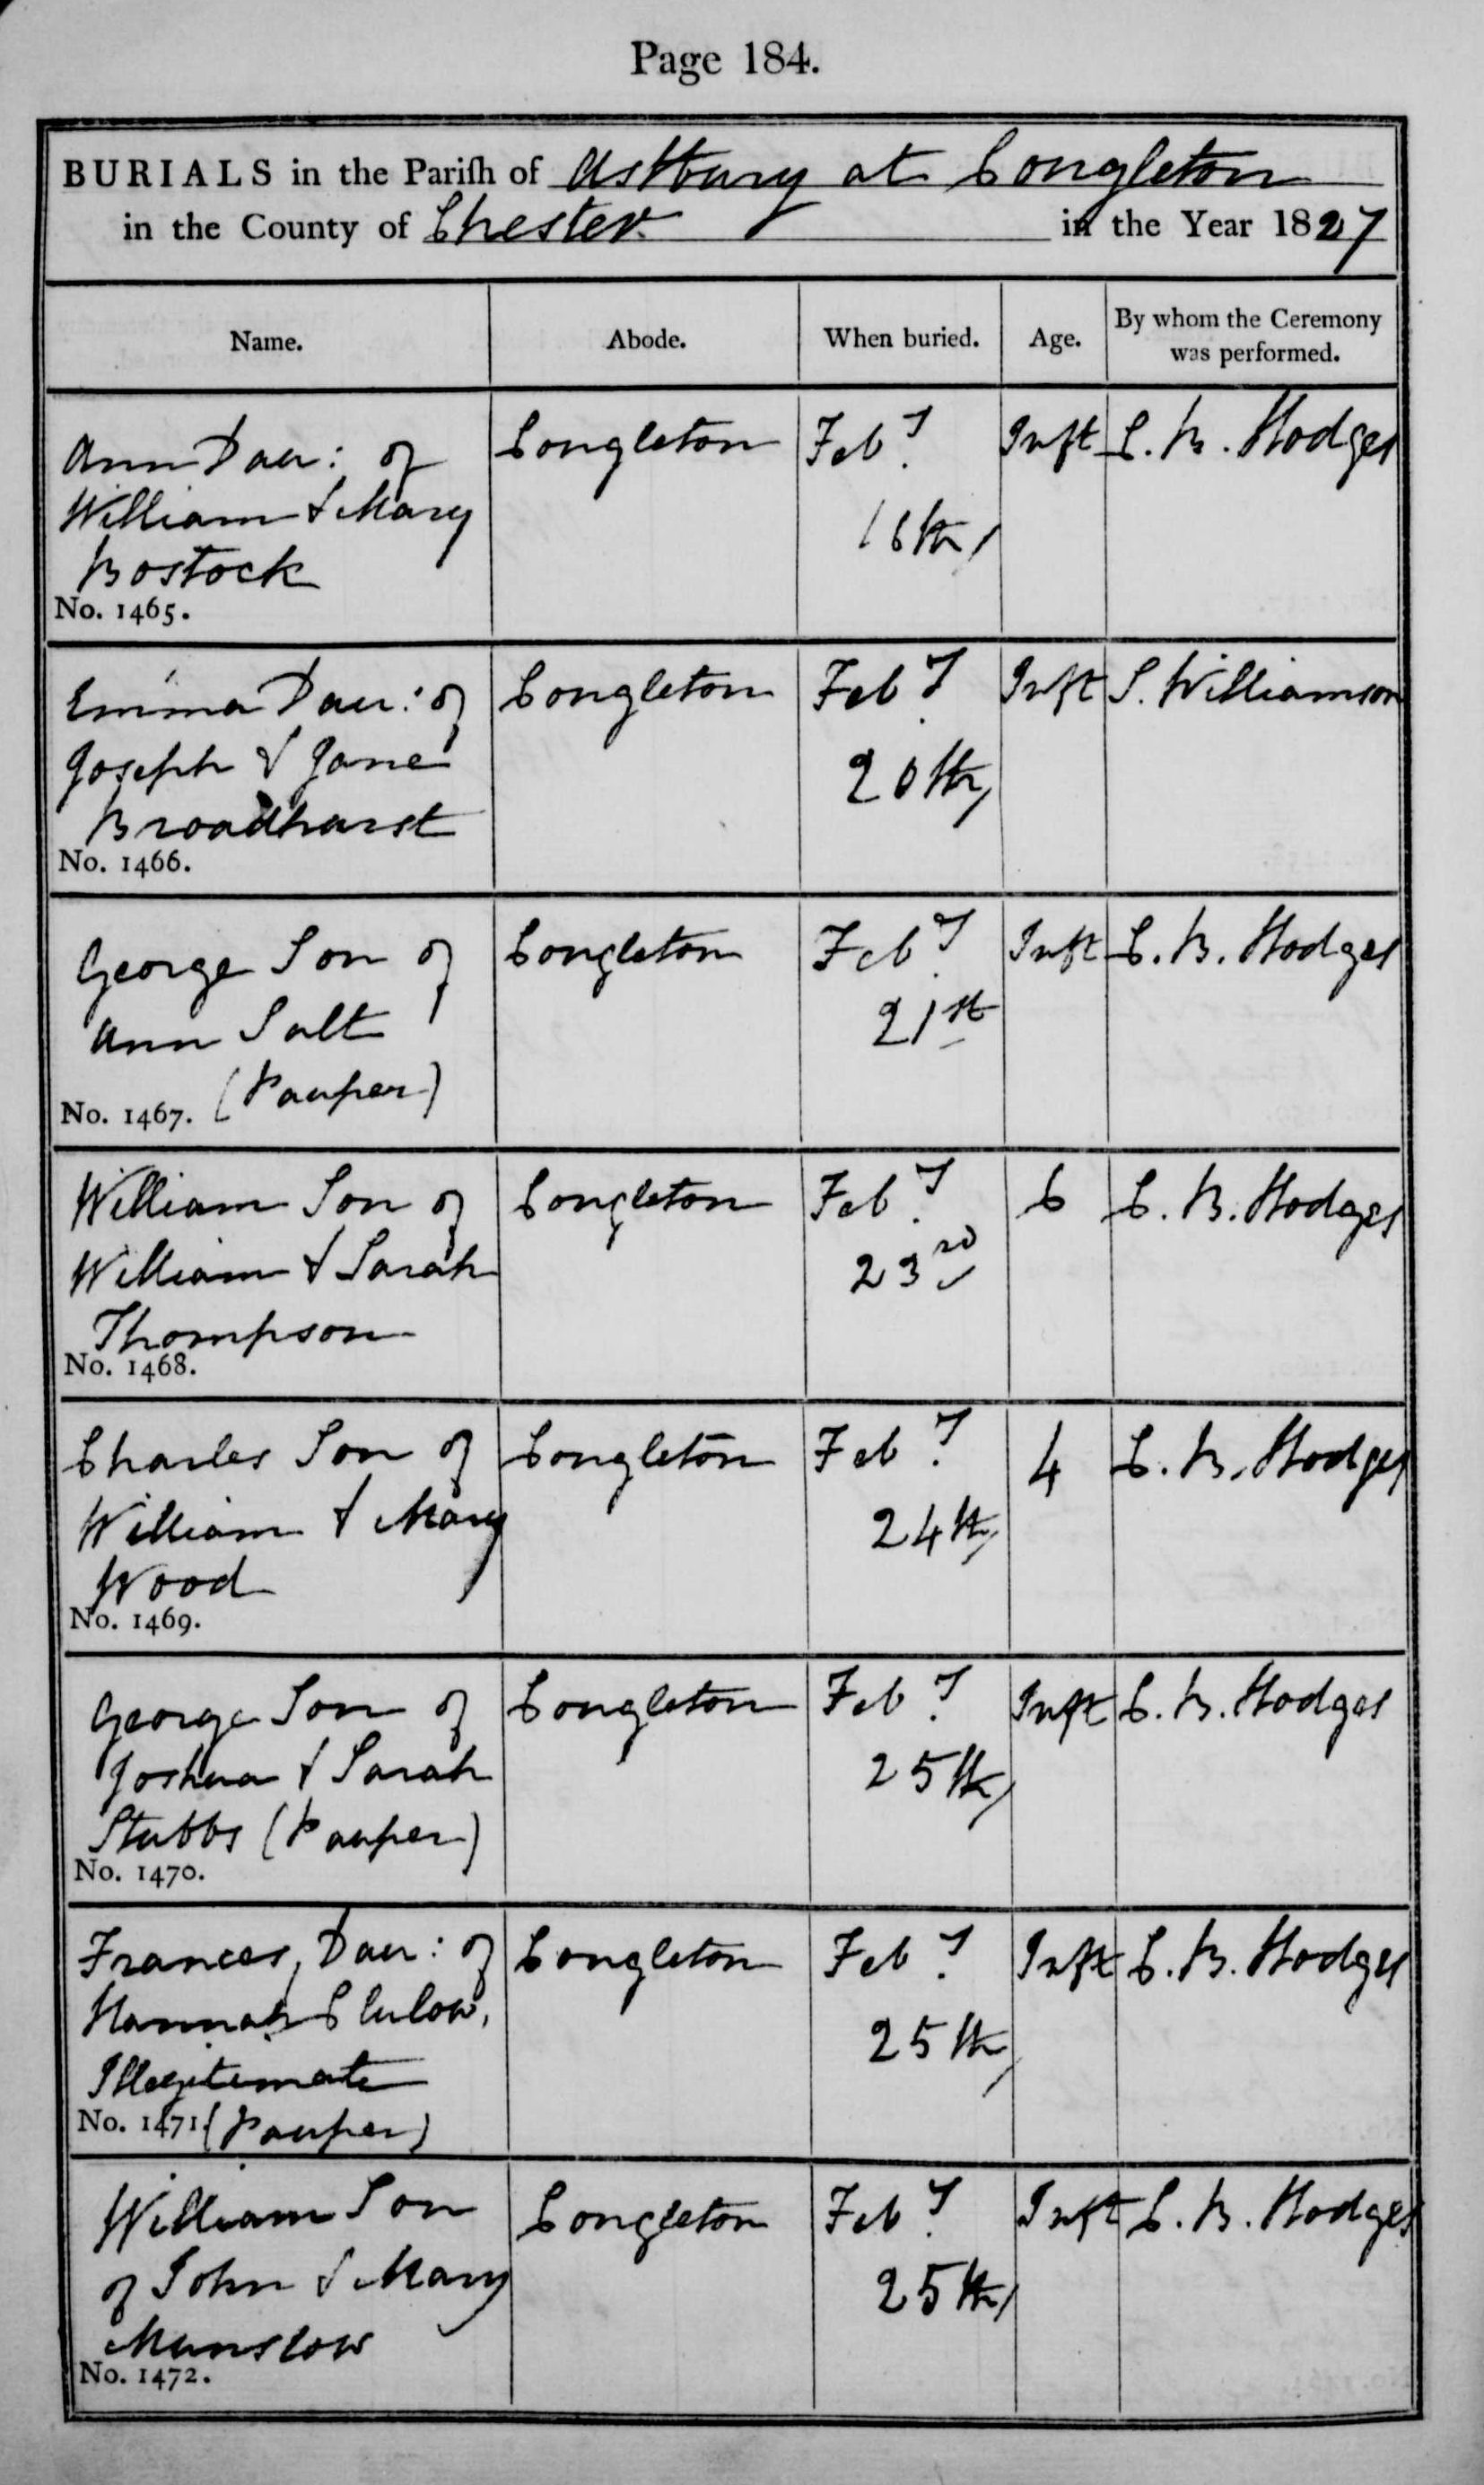 Page 184.
BURIALS in the Pariſh of Astbury at Congleton
in the County of Chester in the Year 1827
Name. Abode. When buried. Age. By whom the Ceremony
was performed.
Ann Daur: of Congleton Feby. Inft C. B. Hodges
William & Mary 18th,
Bostock
No. 1465.
Emma Daur: of Congleton Feby. Inft S. Williamson
Joseph & Jane 20th,
Broadhurst
No. 1466.
George Son of Congleton Feby. Inft C. B. Hodges
Ann Salt 21st
No. 1467. (Pauper)
William Son of Congleton Feby. 6 C. B. Hodges
William & Sarah 23rd
Thompson
No. 1468.
Charles Son of Congleton Feby. 4 C. B. Hodges
William & Mary 24th,
Wood
No. 1469.
George Son of Congleton Feby. Inft C. B. Hodges
Joshua & Sarah 25th,
Stubbs (Pauper)
No. 1470.
Frances, Daur: of Congleton Feby. Inft C. B. Hodges
Hannah Clulow, 25th,
Illegitimate
No. 1471. (Pauper)
William Son Congleton Feby. Inft C. B. Hodges
of John & Mary 25th,
Munslow
No. 1472.